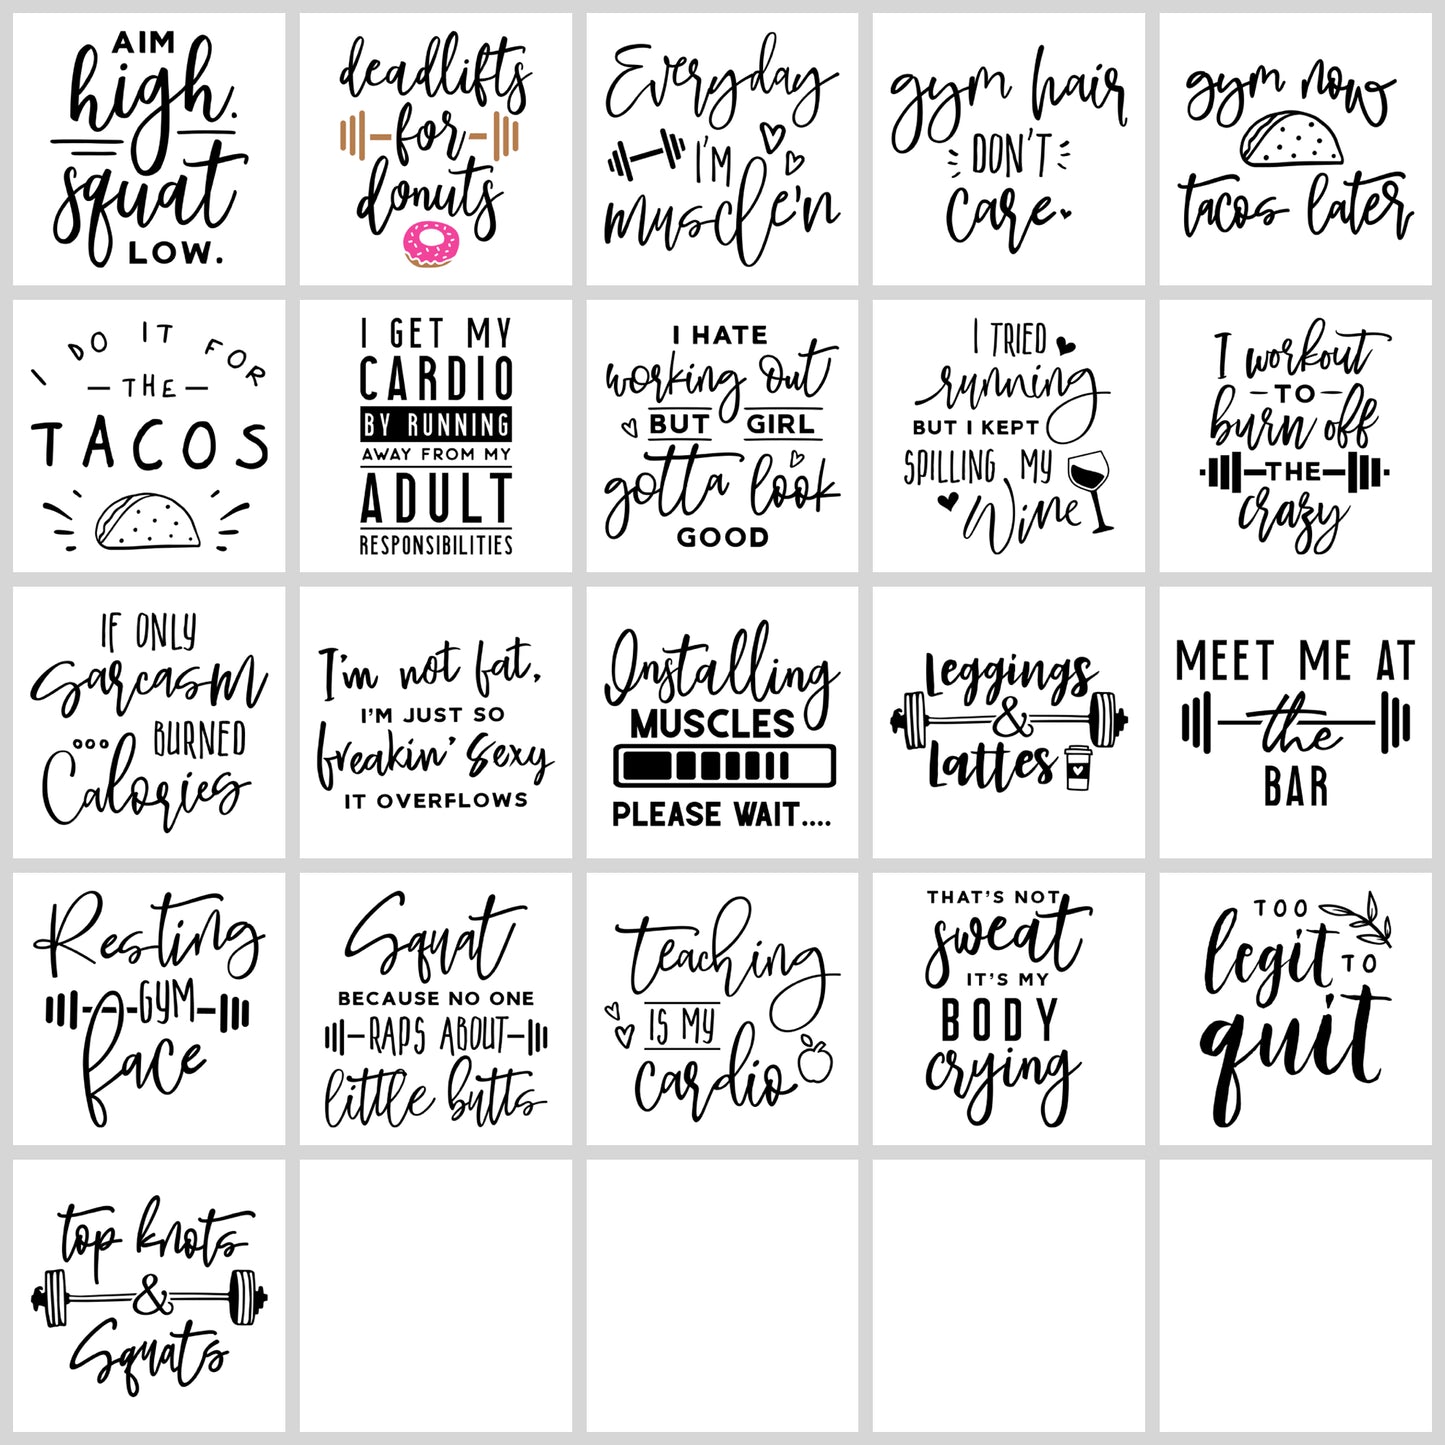 AIM
high.
squat
LOW.
deadlifts
for
donuts
Everyday
I'M
muscle'n
gym hair
DON'T
care.
gym now
tacos later
I DO IT FOR
THE
TACOS
I GET MY
CARDIO
BY RUNNING
AWAY FROM MY
ADULT
RESPONSIBILITIES
I HATE
working out
BUT GIRL
gotta look
GOOD
I TRIED
running
BUT I KEPT
SPILLING MY
Wine
I workout
TO
burn off
THE
crazy
IF ONLY
Sarcasm
BURNED
Calories
I'm not fat,
I'M JUST SO
freakin' Sexy
IT OVERFLOWS
Installing
MUSCLES
PLEASE WAIT....
Leggings
&
Lattes
MEET ME AT
the
BAR
Resting
GYM
face
Squat
BECAUSE NO ONE
RAPS ABOUT
little butts
Teaching
IS MY
cardio
THAT'S NOT
sweat
IT'S MY
BODY
crying
TOO
legit
TO
quit
top knots
&
Squats